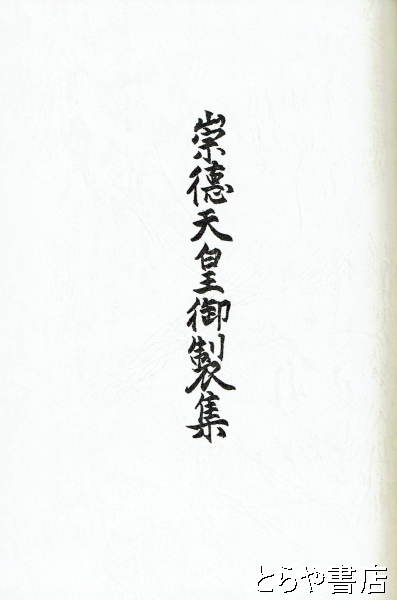 崇德天皇御製集
とらや書店